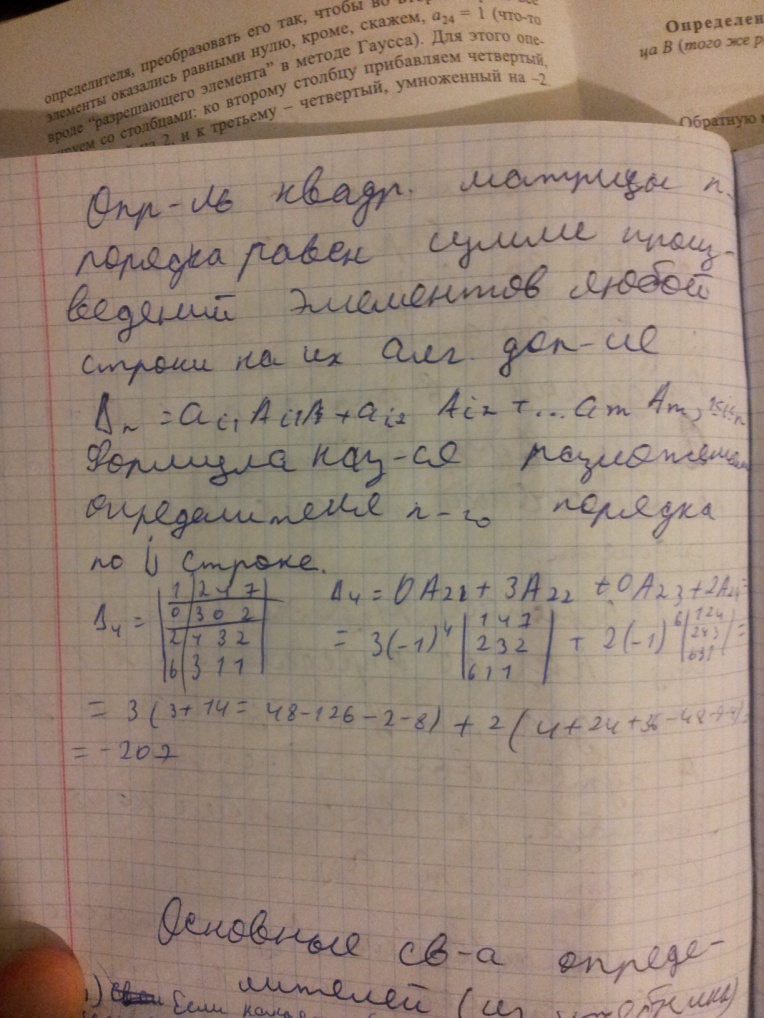 определителя, преобразовать его так, чтобы во
элементы оказались равными нулю, кроме, скажем, a₂₄ = 1 (что-то
вроде "разрешающего элемента" в методе Гаусса). Для этого опе-
рируем со столбцами: ко второму столбцу прибавляем четвертый,
на 2, и к третьему – четвертый, умноженный на –2
Определен
ца B (того же р
Обратную
Опр-ль квадр. матрицы n
порядка равен сумме произ-
ведений элементов любой
строки на их алг. доп-ие
Δₙ = aᵢ₁ Aᵢ₁ + aᵢ₂ Aᵢ₂ + ...
Формула наз-ся
определителя n-го порядка
по i строке.
Δ₄ = | 1 2 4 7 | Δ₄ = 0A₂₁ + 3A₂₂ + 0A₂₃ + 2A₂₄ =
| 0 3 0 2 |
| 2 4 3 2 |
| 6 3 1 1 |
= 3(-1)⁴ | 1 4 7 | + 2(-1)⁶ | 1 2 4 | =
| 2 3 2 | | 2 4 3 |
| 6 1 1 | | 6 3 1 |
= 3(3+14= 48-126-2-8) + 2(4+24+36-48-9-4)=
= -207
Основные св-а опреде-
лителей (из учебника)
1) Если